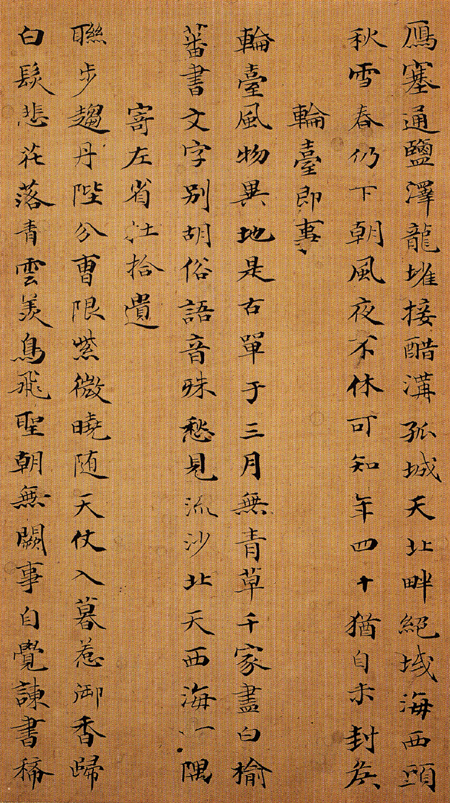 鴈塞通鹽澤龍堆接醋溝孤城天北畔絕域海西頭
秋雪春仍下朝風夜不休可知年四十猶自未封侯
輪臺即事
輪臺風物異地是古單于三月無青草千家盡白榆
蕃書文字別胡俗語音殊愁見流沙北天西海一隅
寄左省杜拾遺
聯步趨丹陛分曹限紫微曉随天仗入暮惹御香歸
白髮悲花落青雲羨鳥飛聖朝無闕事自覺諫書稀